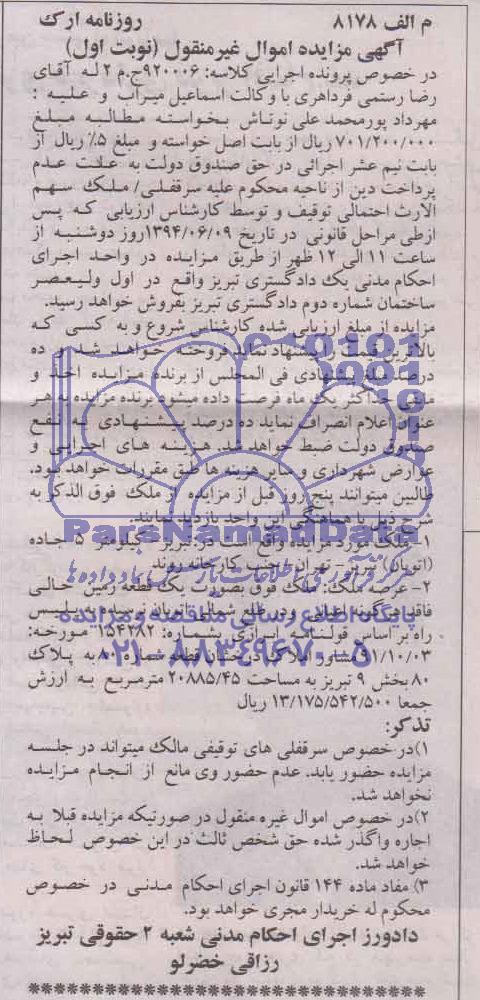 م الف ۸۱۷۸ روزنامه ارک
آگهی مزایده اموال غیرمنقول (نوبت اول)
در خصوص پرونده اجرایی کلاسه: ۹۲۰۰۰۶ج.م ۲ له آقای
رضا رستمی فرداهری با وکالت اسماعیل میراب و علیه :
مهرداد پورمحمد علی نوتاش بخواسته مطالبه مبلغ
۷۰۱/۲۰۰/۰۰۰ ریال از بابت اصل خواسته و مبلغ ۵٪ ریال از
بابت نیم عشر اجرائی در حق صندوق دولت به علت عدم
پرداخت دین از ناحیه محکوم علیه سرقفلی/ ملک سهم
الارث احتمالی توقیف و توسط کارشناس ارزیابی که پس
ازطی مراحل قانونی در تاریخ ۱۳۹۴/۰۶/۰۹روز دوشنبه از
ساعت ۱۱ الی ۱۲ ظهر از طریق مزایده در واحد اجرای
احکام مدنی یک دادگستری تبریز واقع در اول ولیعصر
ساختمان شماره دوم دادگستری تبریز بفروش خواهد رسید.
مزایده از مبلغ ارزیابی شده کارشناس شروع و به کسی که
بالاترین قیمت را پیشنهاد نماید فروخته خواهد شد و ده
درصد مبلغ پیشنهادی فی المجلس از برنده مزایده اخذ و
مابقی حداکثر یک ماه فرصت داده میشود برنده مزایده به هر
عنوان اعلام انصراف نماید ده درصد پیشنهادی به نفع
صندوق دولت ضبط خواهد شد. هزینه های اجرایی و
عوارض شهرداری و سایر هزینه ها طبق مقررات خواهد بود.
طالبین میتوانند پنج روز قبل از مزایده از ملک فوق الذکر به
شرح ذیل با هماهنگی این واحد بازدید نمایند.
۱- ملک مورد مزایده واقع است در: تبریز - کیلومتر ۵ جاده
(اتوبان) تبریز - تهران - جنب کارخانه روند
۲- عرصه ملک: ملک فوق بصورت یک قطعه زمین خالی
فاقد هرگونه اعیانی و در ضلع شمالی اتوبان نرسیده به پلیس
راه بر اساس قولنامه ابرازی بشماره: ۱۵۴۲۸۲ مورخه:
۹۱/۱۰/۰۳ مشاور املاک درخشان قطعه شماره ۸۰ به پلاک
۸۰ بخش ۹ تبریز به مساحت ۲۰۸۸۵/۴۵ مترمربع به ارزش
جمعا ۱۳/۱۷۵/۵۴۲/۵۰۰ ریال
تذکر:
۱)در خصوص سرقفلی های توقیفی مالک میتواند در جلسه
مزایده حضور یابد. عدم حضور وی مانع از انجام مزایده
نخواهد شد.
۲)در خصوص اموال غیره منقول در صورتیکه مزایده قبلا به
اجاره واگذر شده حق شخص ثالث در این خصوص لحاظ
خواهد شد.
۳) مفاد ماده ۱۴۴ قانون اجرای احکام مدنی در خصوص
محکوم له خریدار مجری خواهد بود.
دادورز اجرای احکام مدنی شعبه ۲ حقوقی تبریز
رزاقی خضرلو
ParsNamadData
پایگاه اطلاع رسانی مناقصه و مزایده
۰۲۱-۸۸۳۴۹۶۷۰-۵